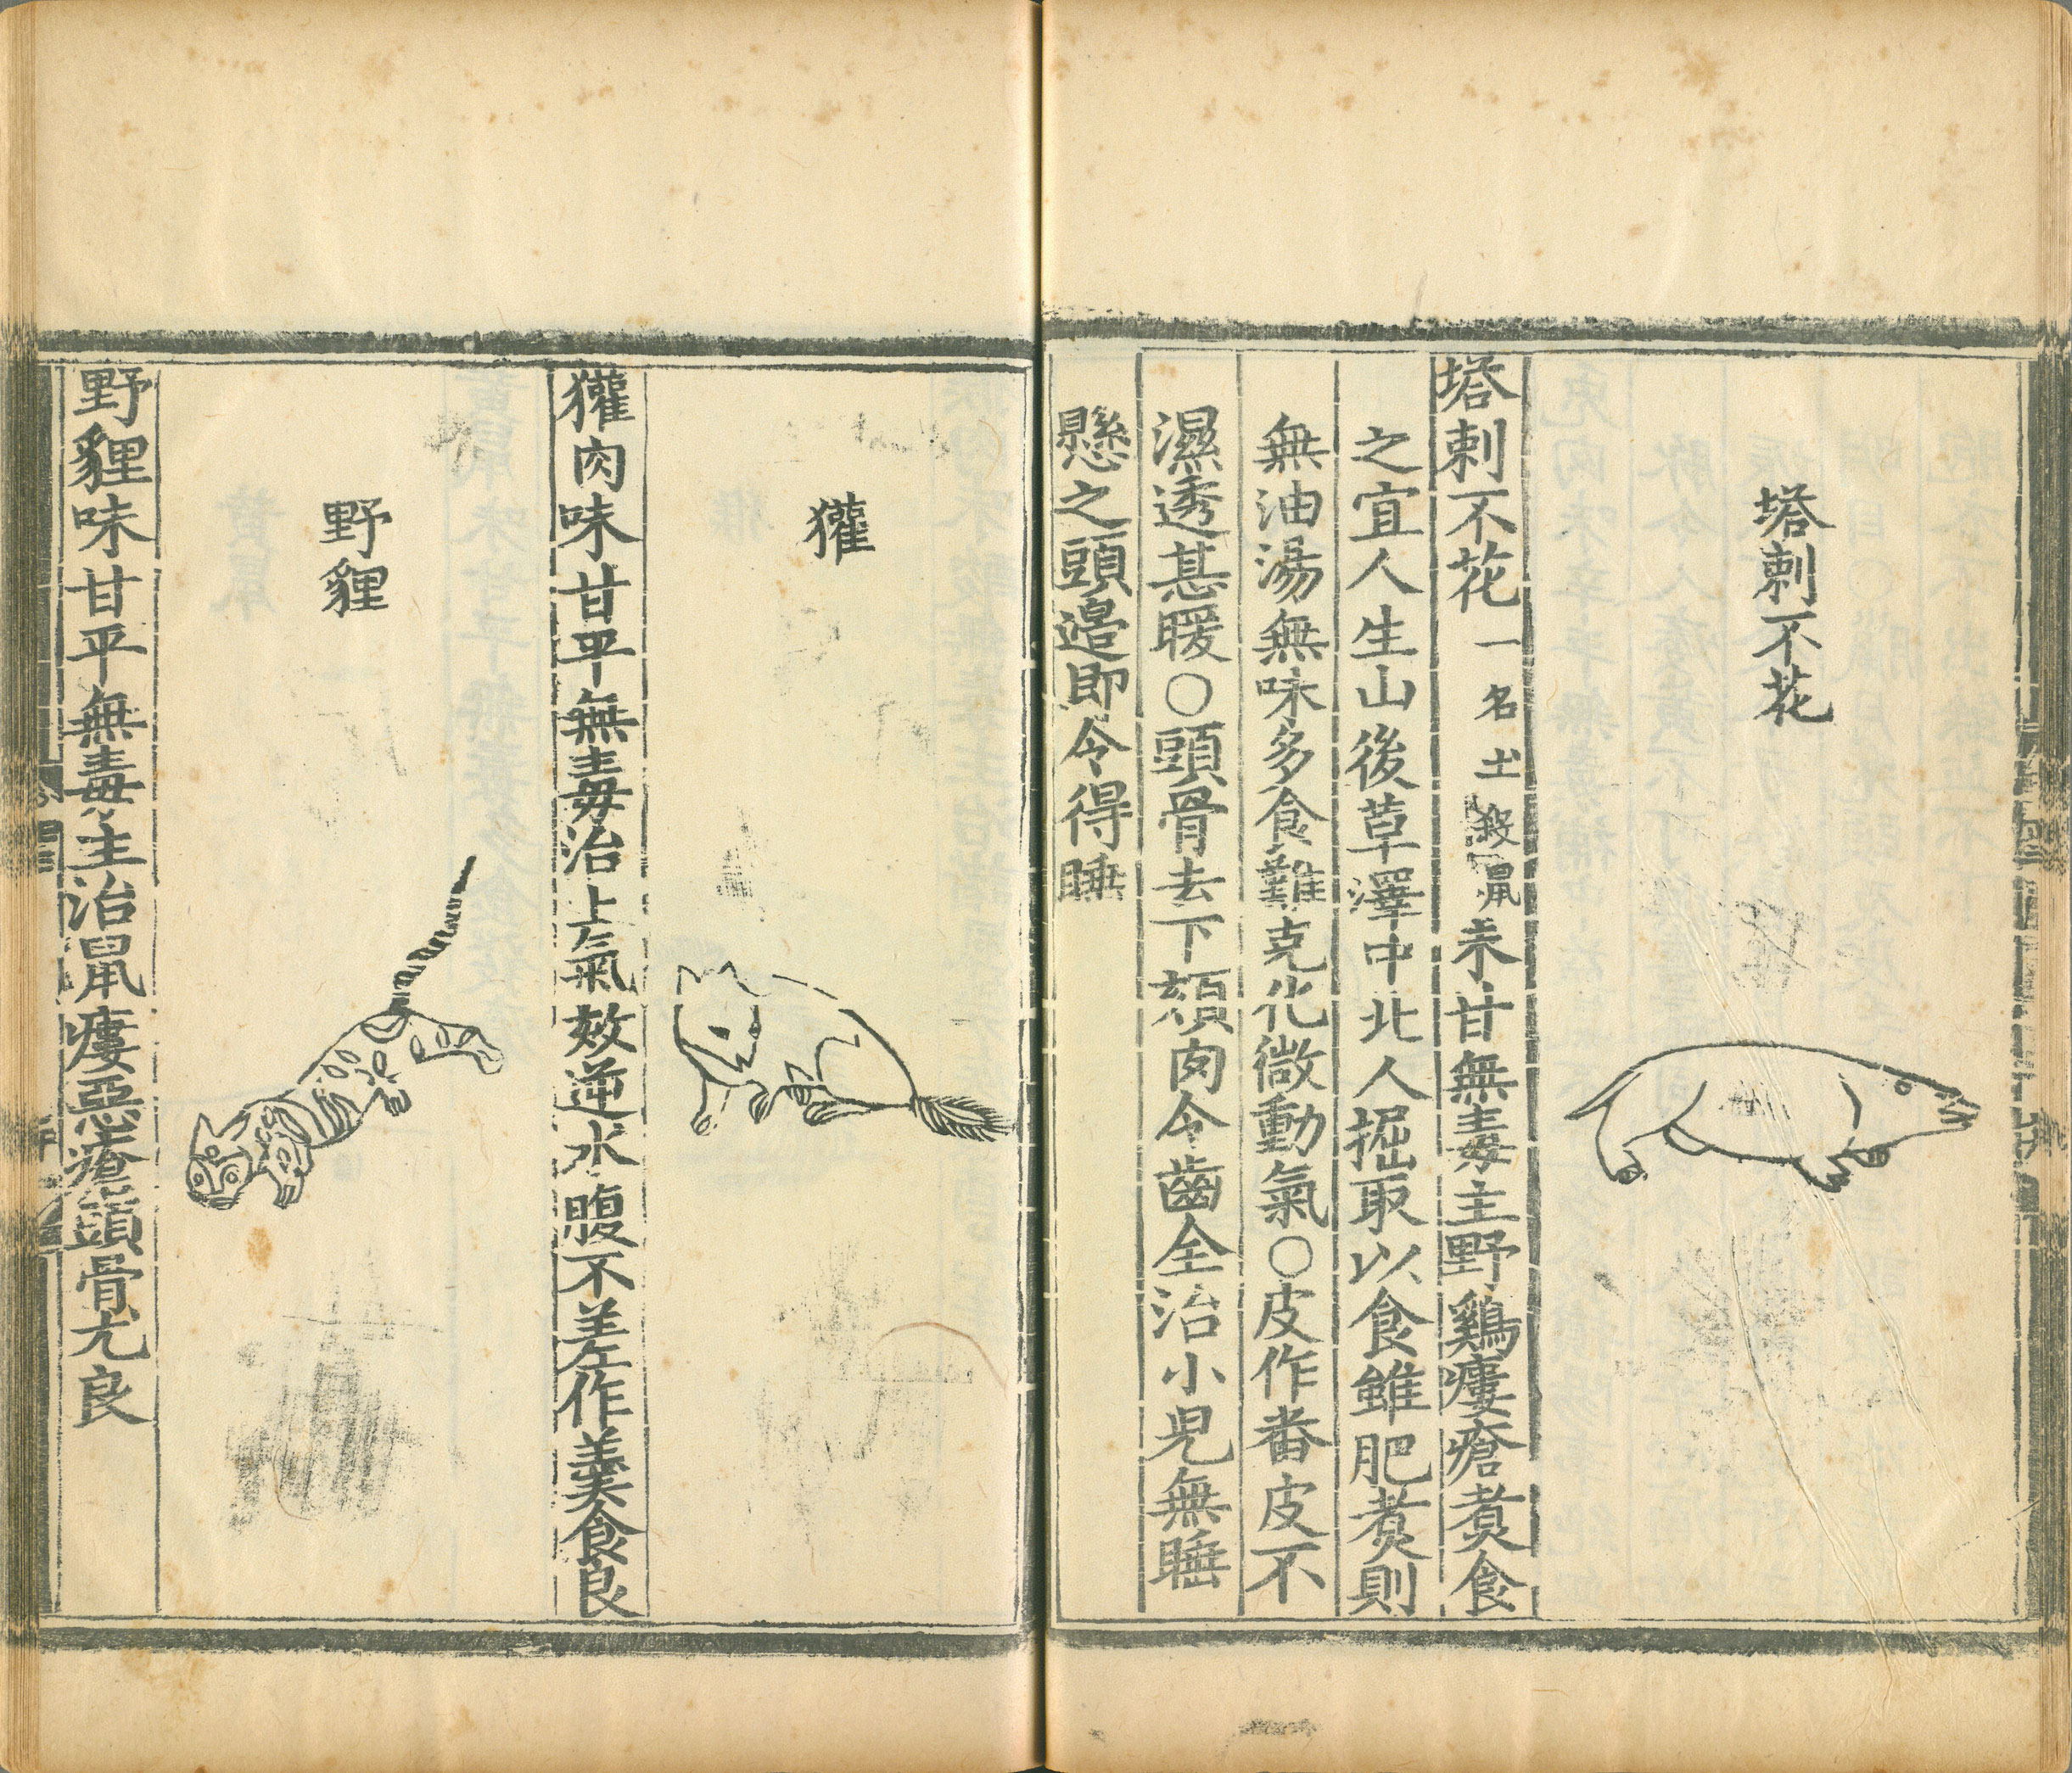 塔剌不花
塔剌不花一名土撥鼠味甘無毒主野鷄瘻瘡煮食
之宜人生山後草澤中北人掘取以食雖肥煮則
無油湯無味多食難克化微動氣○皮作番皮不
濕透甚暖○頭骨去下頦肉令齒全治小兒無睡
懸之頭邉即令得睡
獾
獾肉味甘平無毒治上氣欬逆水腹不差作羹食良
野貍
野貍味甘平無毒主治鼠瘻惡瘡頭骨尤良